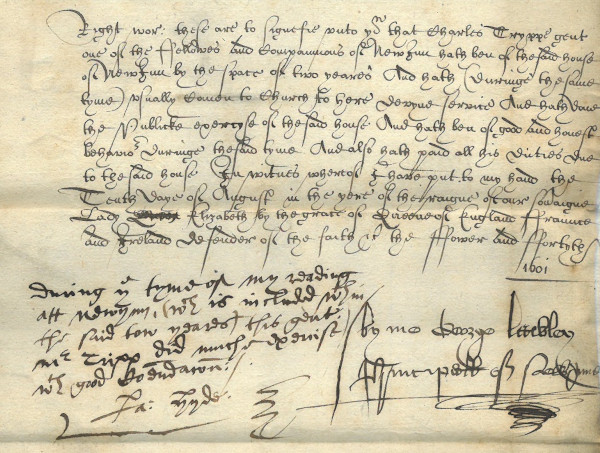 Right wor: these are to signefie vnto yor that Charles Tryppe gent
one of the ffellowes and Companions of New Inn hath ben of the said house
of New Inn by the space of two yeares And hath (duringe the same
tyme) vsually Comen to Church to here devyne service And hath done
the Publicke exercyse of the said house And hath ben of good and honest
behavior duringe the said tyme And also hath paid all his duties due
to the said house In witnes whereof I have put to my hand the
Tenth Daye of August in the yere of the raigne of our sovraigne
Lady Elizabeth by the grace of Queene of England ffraunce
and Ireland defender of the faith &c the ffower and ffortith
1601
during ye tyme of my reading
att newynn (wch is included wth in
the said tow yeares) this gent
mr Tripp did much exercise
wth good Comendacion:
Ja: Hyde:
by me George
Principall of New Inne